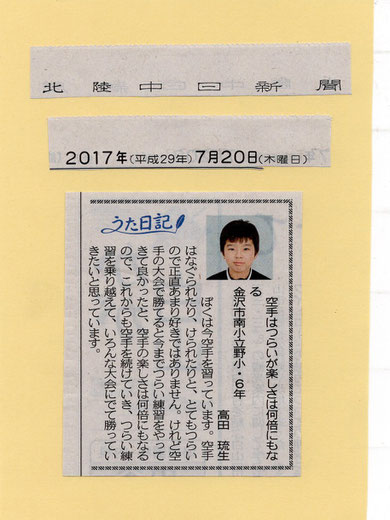 北陸中日新聞
2017年(平成29年)7月20日(木曜日)
うた日記
空手はつらいが楽しさは何倍にもな
る
金沢市南小立野小・6年
高田 琉生
ぼくは今空手を習っています。空手
はなぐられたり、けられたりと、とてもつらい
ので正直あまり好きではありません。けれど空
手の大会で勝てると今までつらい練習をやって
きて良かったと、空手の楽しさは何倍にもなる
ので、これからも空手を続けていき、つらい練
習を乗り越えて、いろんな大会にでて勝ってい
きたいと思っています。